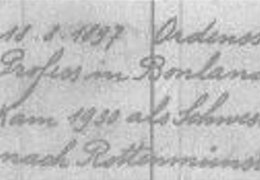 18.8.1897 Ordenss
Profess in Bonland
Kam 1930 als Schwes
nach Rottenmünst